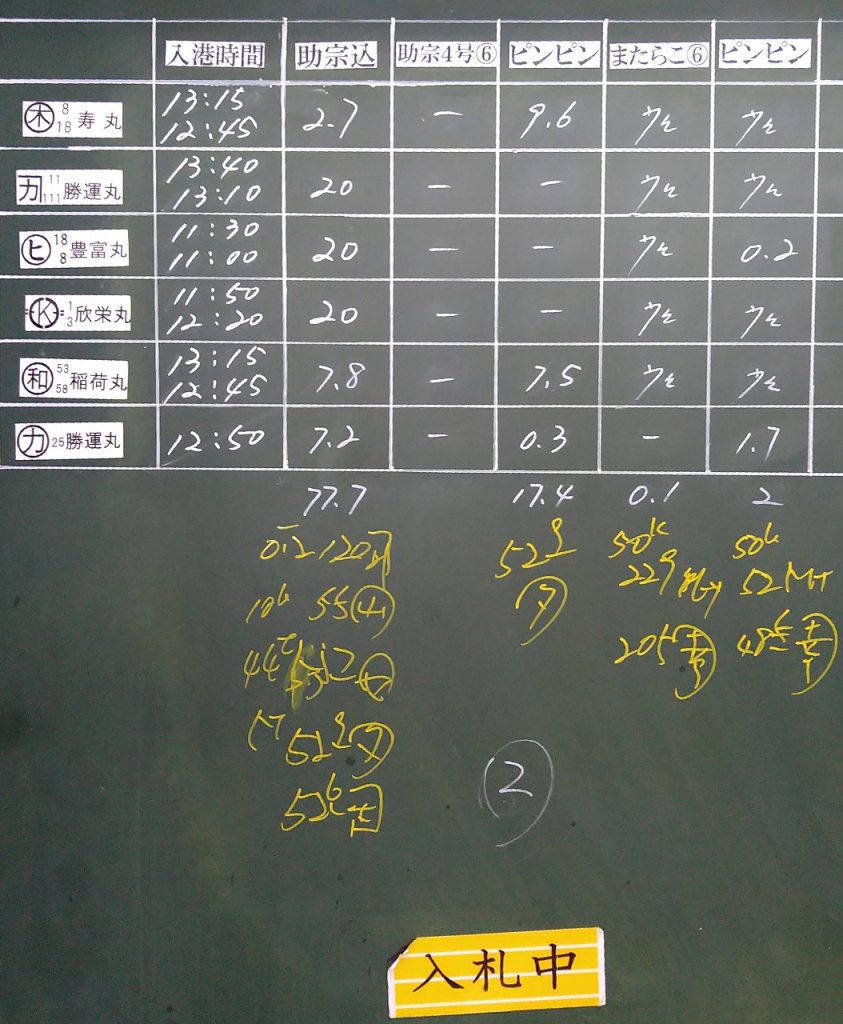 入港時間 助宗込 助宗4号⑥ ピンピン またらこ⑥ ピンピン
㊍ 8 18 寿丸 13:15 12:45 2.7 ー 9.6 少々 少々
カ 11 111 勝運丸 13:40 13:10 20 ー ー 少々 少々
ヒ 18 8 豊富丸 11:30 11:00 20 ー ー 少々 0.2
K 1 3 欣栄丸 11:50 12:20 20 ー ー 少々 少々
和 53 58 稲荷丸 13:15 12:45 7.8 ー 7.5 少々 少々
カ 25 勝運丸 12:50 7.2 ー 0.3 ー 1.7
77.7 17.4 0.1 2
120 52 50K 50K
55 229 52
205 48
②
入札中